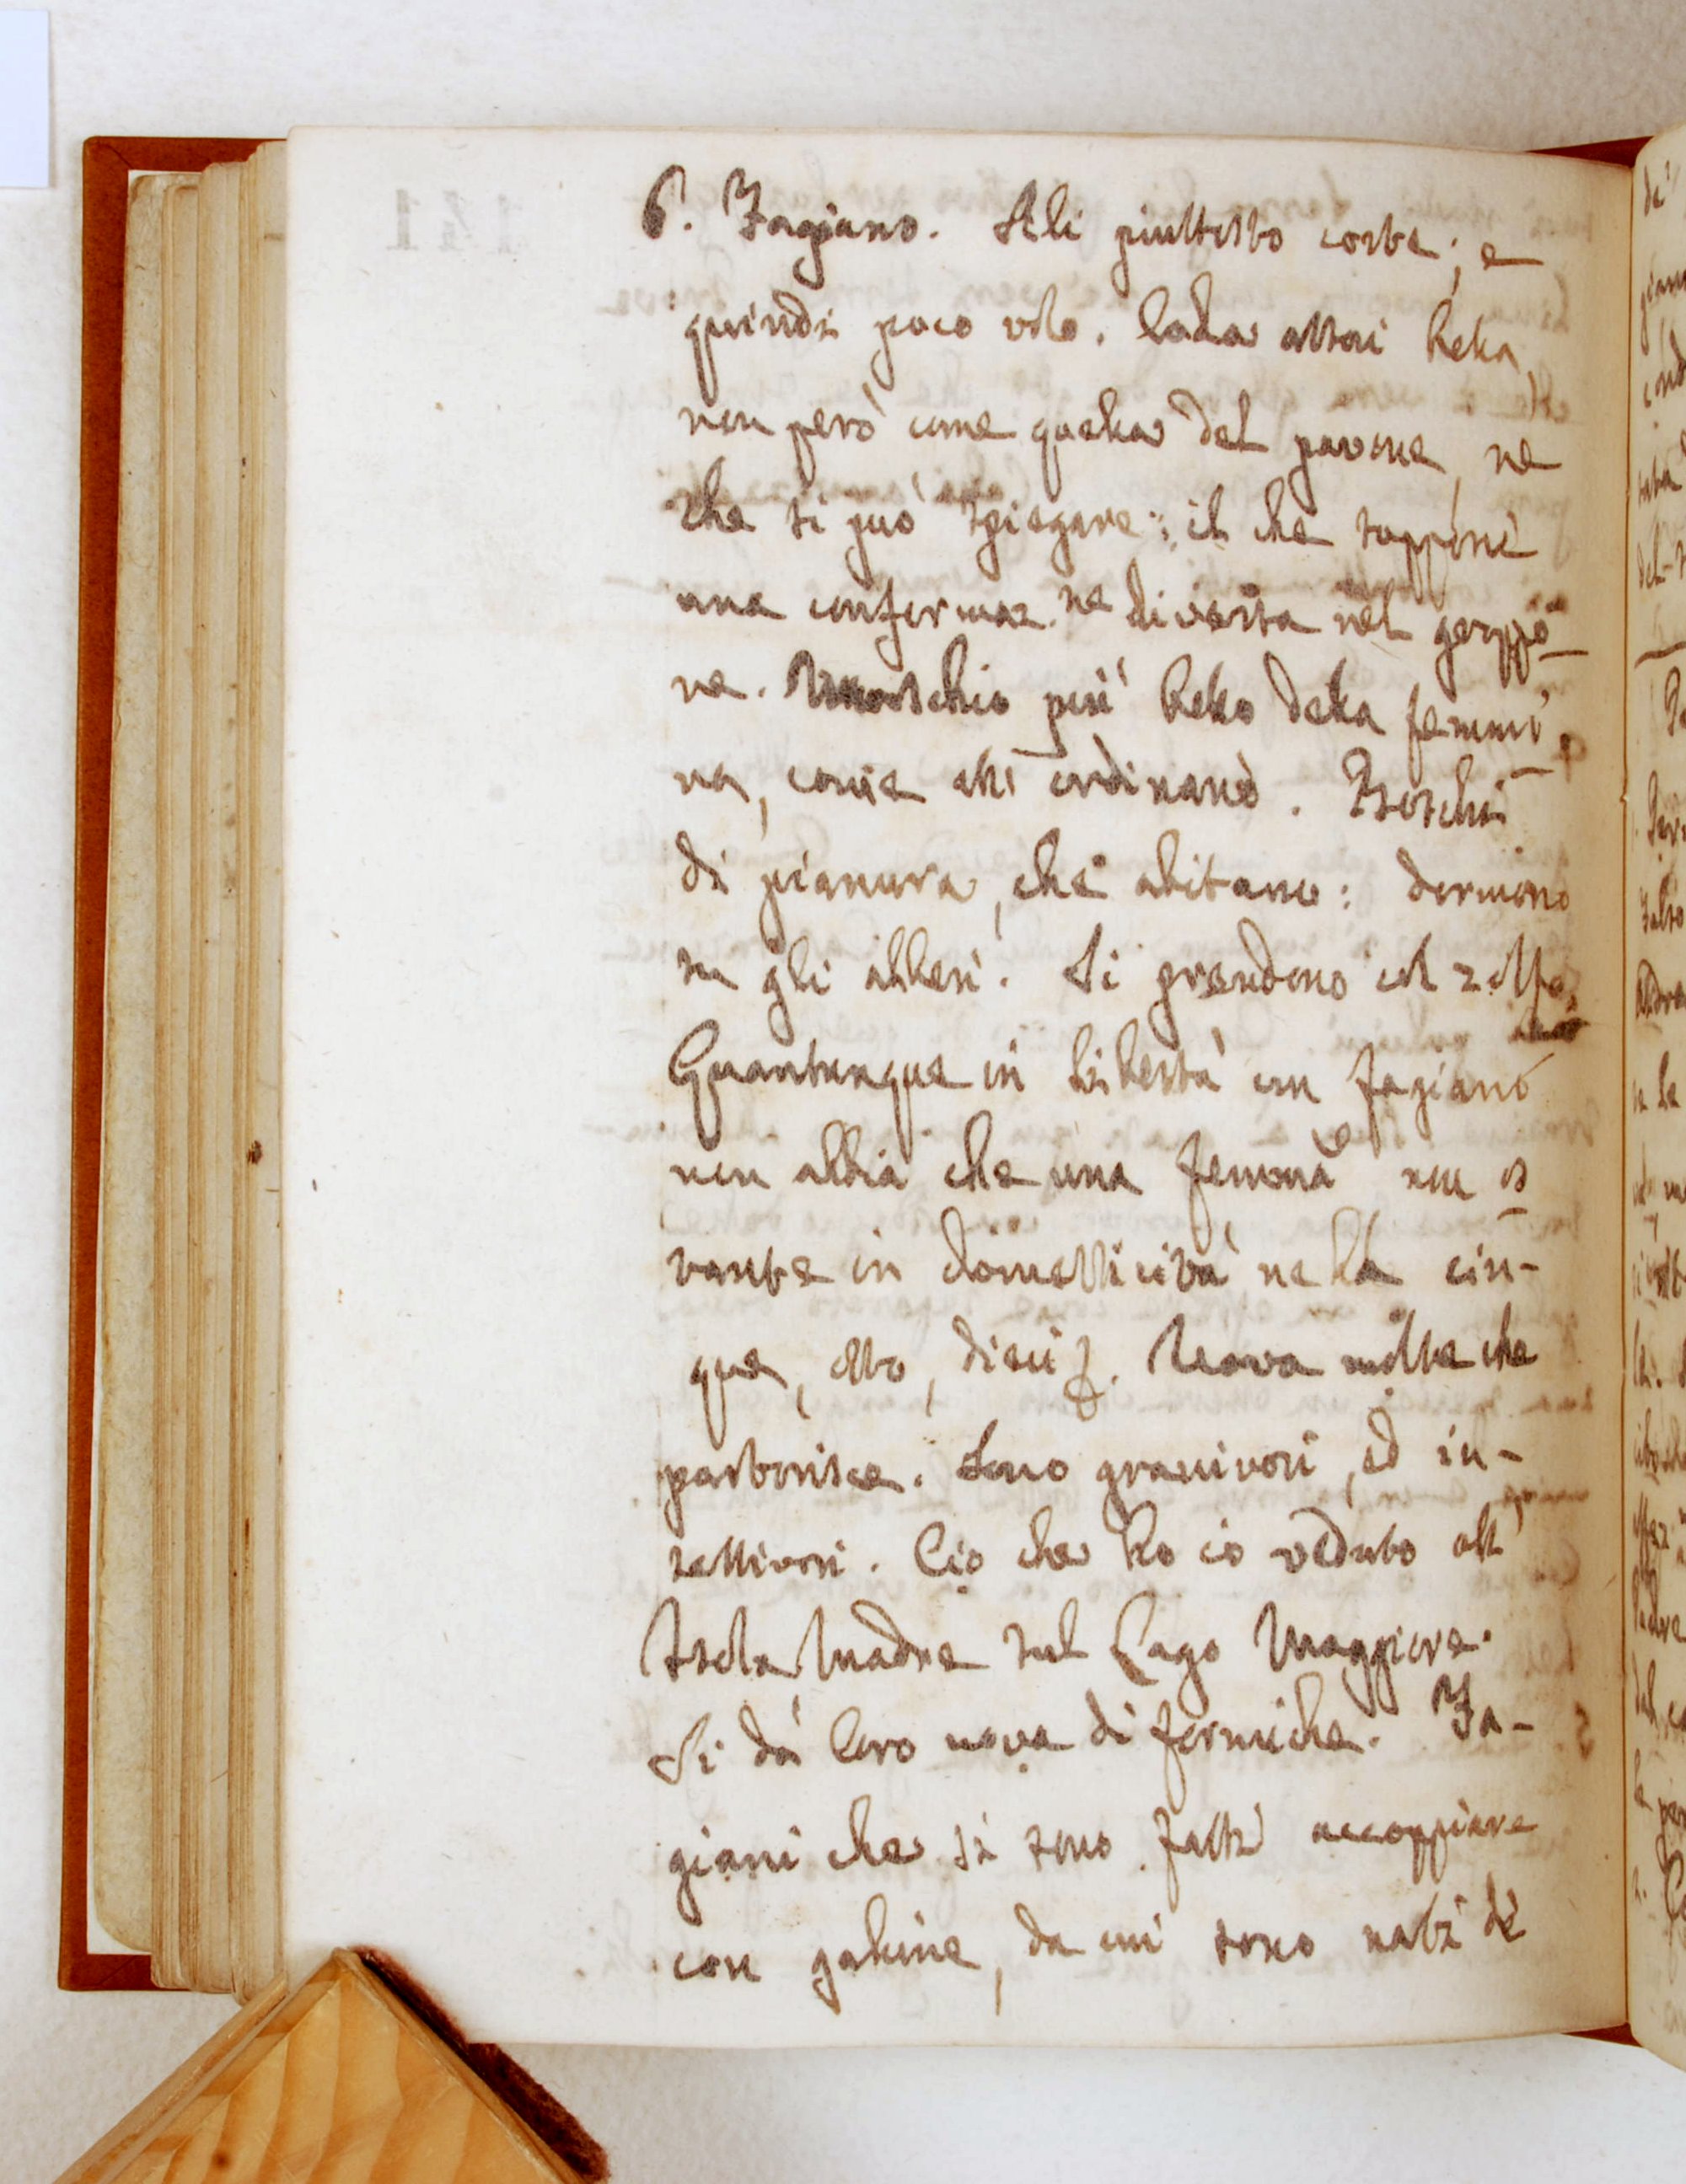 6. Fagiano. Ali piuttosto corte; e
quindi poco volo. Coda assai bella,
non però come quella del pavone, ne
che si può spiegare: il che suppone
una conformaz.ne diversa nel groppo-
ne. Maschio più bello della femmi-
na, come all' ordinario. Boschi
di pianura, che abitano: dormono
su gli alberi. Si prendono col zolfo.
Quantunque in libertà un fagiano
non abbia che una femina non
vante in domesticità ne ha cin-
que, otto, dieci f. Uova molte che
partorisce. Sono granivori, ed in-
settivori. Ciò che ho io veduto all'
Isola Madre sul Lago Maggiore.
Si dà loro uova di formiche. Fa-
giani che si sono fatti accoppiare
con galline, da cui sono nati de